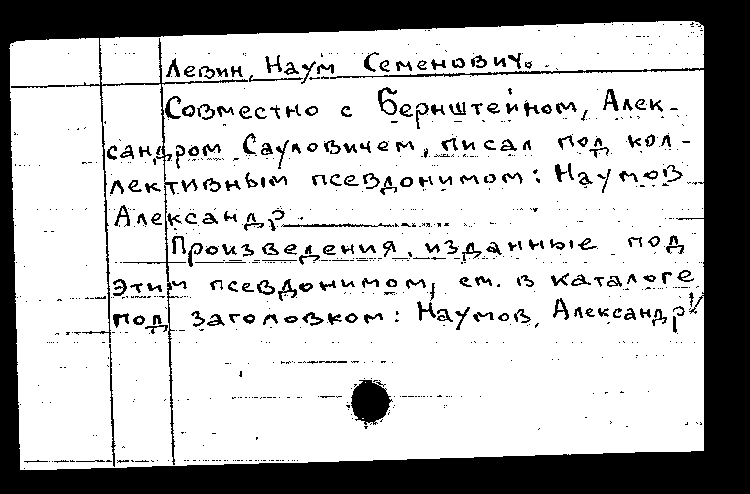 Левин, Наум Семенович.
Совместно с Бернштейном, Алек-
сандром Сауловичем, писал под кол-
лективным псевдонимом: Наумов
Александр.
Произведения, изданные под
этим псевдонимом, см. в каталоге
под заголовком: Наумов, Александр!/